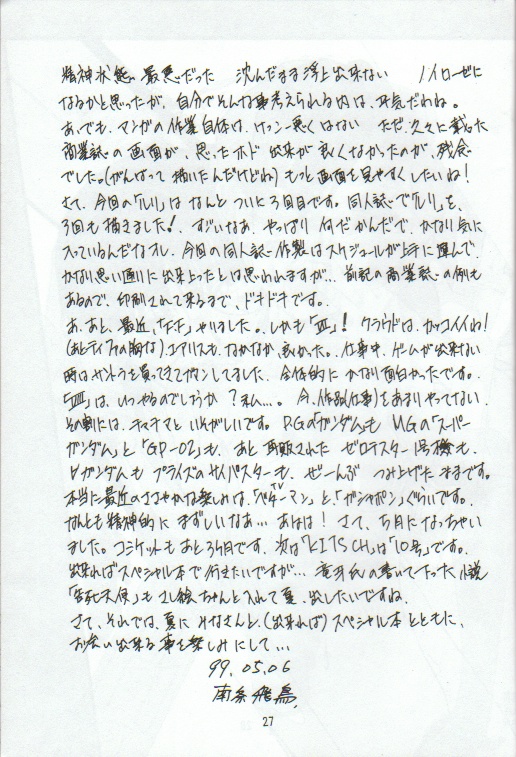 精神状態 最悪だった 沈んだまま浮上出来ない ノイローゼに
なるかと思ったが、自分でそんな事考えられる内は、平気だわね。
あ、でも、マンガの作業自体は、けっこー悪くはない ただ、久々に載った
商業誌の画面が、思ったホド 出来が良くなかったのが、残念
でした。(がんばって描いたんだけどね) もっと画面を見やすくしたいね!
さて、今回の「ルリ」は なんと ついに3回目です。同人誌で「ルリ」を、
3回も描きました! すごいなあ、やっぱり 何だかんだで、かなり気に
入っているんだなオレ、今回の同人誌作製はスケジュールが上手に運んで、
かなり思い通りに出来上ったとは思われますが… 前記の商業誌の例も
あるので、印刷されて来るまで、ドキドキです。
あ、あと、最近、「F.F」やりました。しかも「Ⅶ」! クラウドは、カッコイイね!
(あとティファの胸な)、エアリスも、なかなか、良かった。仕事中、ゲームが出来ない
時はサントラを買ってきてガマンしてました。全体的に かなり面白かったです。
「Ⅷ」は、いつやるのでしょうか?私…。 今、作品(仕事)をあまりやってない、
その割には、チャチャマといそがしいです。P.Gの「ガンダム」も MGの「スーパー
ガンダム」と「GP-02」も、あと再販された ゼロテスター1号機も、
∀ガンダムも プライズのサイバスターも、ぜーんぶ つみ上げたままです。
本当に最近のささやかな楽しみは、TV「ベターマン」と、「ガシャポン」ぐらいです。
なんとも精神的に まずしいなあ… あはは! さて、5月になっちゃい
ました。コミケットも あと3ヶ月です、次は「KITSCH」は「10号」です。
出来ればスペシャル本で行きたいですが… 竜牙氏の書いてたった小説
も さし絵ちゃんと入れて夏、出したいですね、
さて、それでは、夏に みなさんと、(出来れば) スペシャル本 とともに、
お会い出来る事を楽しみにして…
99.05.06
南条飛鳥
27